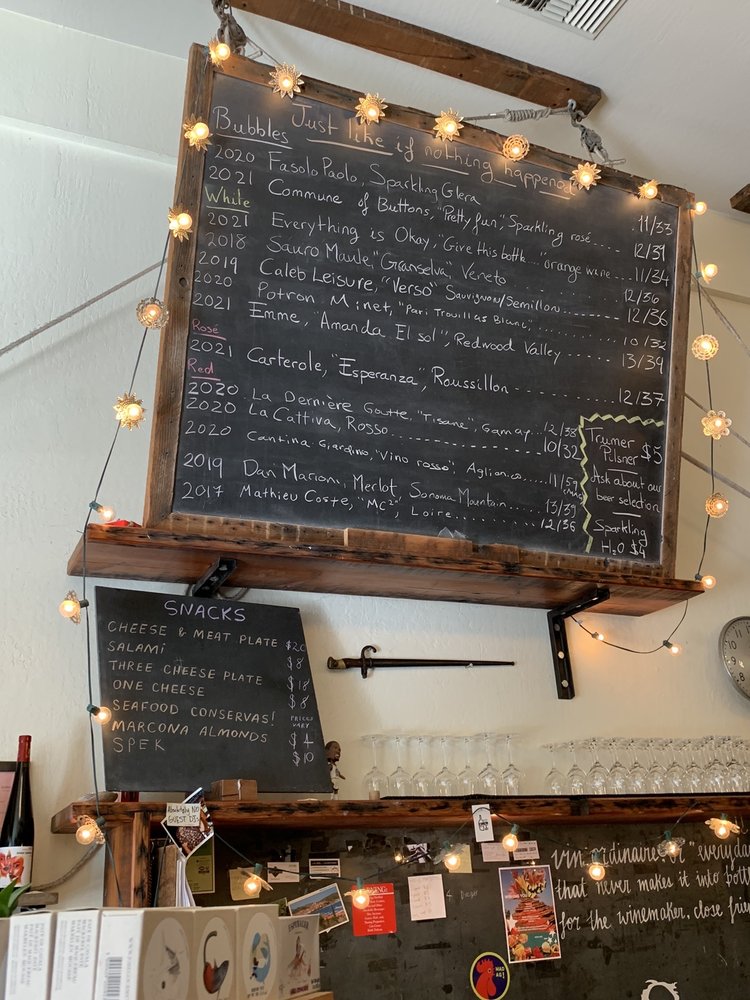 Just like if nothing happened
Bubbles
2020 Fasolo Paolo, Sparkling Glera 11/33
2021 Commune of Buttons, "Pretty fun", Sparkling rosé.... 12/39
White
2021 Everything is Okay, "Give this bottle..." orange wine... 11/34
2018 Sauro Maule, "Granselva" Veneto ........ 12/36
2019 Caleb Leisure, "Verso" Sauvignon/Semillon....... 12/36
2020 Potron Minet, "Pari Trouillas Blanc",......... 10/32
2021 Emme, "Amanda El sol", Redwood Valley ..... 13/39
Rosé
2021 Carterole, "Esperanza", Roussillon ........ 12/37
Red
2020 La Dernière Goutte, "Tisane", Gamay 12/38
2020 La Cattiva, Rosso ........ 10/32
2020 Cantina Giardino, "Vino rosso", Aglianico... 11/59 (MAG)
2019 Dan Marioni, Merlot Sonoma Mountain. 13/39
2017 Mathieu Coste, "MC²", Loire.......... 12/36
Trumer $5
Pilsner
Ask about our
beer selection
Sparkling
H₂O $4
SNACKS
CHEESE & MEAT PLATE $20
SALAMI $8
THREE CHEESE PLATE $18
ONE CHEESE $8
SEAFOOD CONSERVAS! PRICES VARY
MARCONA ALMONDS $4
SPEK $10
Absolutely NO
GUEST DJs
vin ordinaire or "everyda
that never makes it into bott
for the winemaker, close frie
MAD
AG!